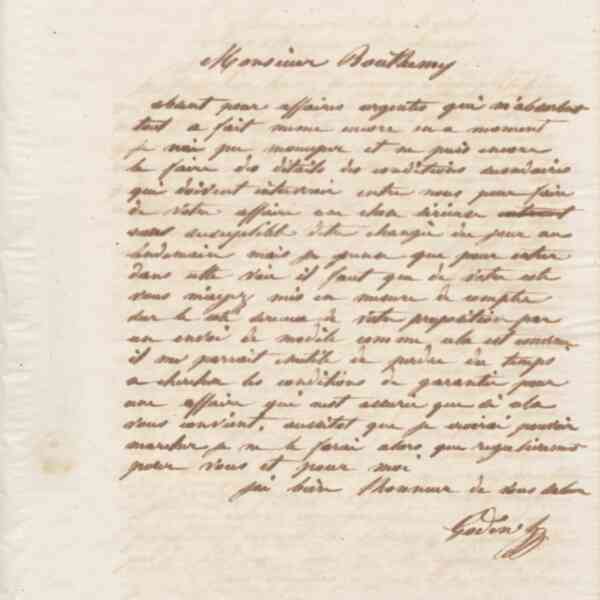 Monsieur Bouthemy
absent pour affaires urgentes qui m'absorbent
tout a fait meme encore en a moment
je n'ai pu m'occuper et ne puis encore
le faire des détails des conditions secondaires
qui doivent intervenir entre nous pour faire
de votre affaire une chose sérieuse
sans susceptible d'etre changée du jour au
lendemain mais je pense que pour entrer
dans cette voie il faut que de votre coté
vous m'ayez mis en mesure de compter
sur le coté serieux de votre proposition par
un envoi de modèle comme cela est convenu
il me parrait inutile de perdre du temps
a chercher les conditions de garantie pour
une affaire qui n'est assurée que si cela
vous convient, aussitot que je croirai pouvoir
marcher je ne le ferai alors que regulierement
pour vous et pour moi
j'ai bien l'honneur de vous saluer
Godin